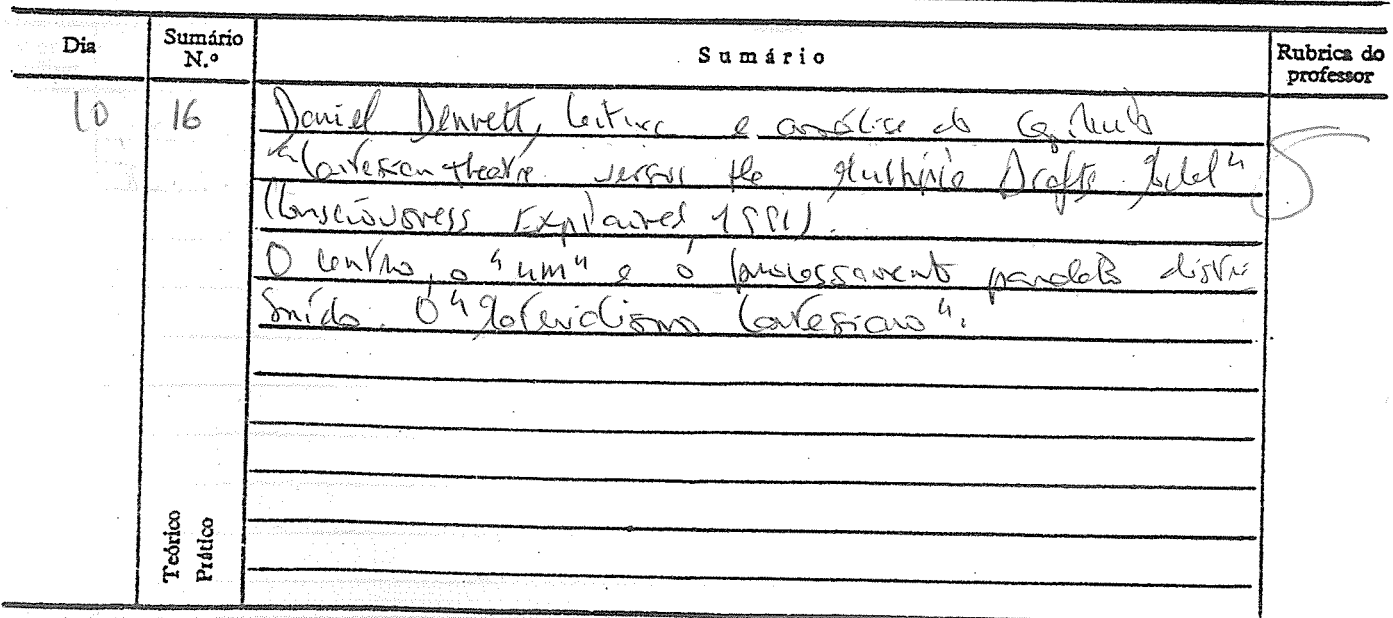 Dia Sumário N.º Sumário Rubrica do professor
10 16 Daniel Dennett, leitura e análise do capítulo
"Cartesian theatre versus the Multiple Drafts Model"
(Consciousness Explained, 1991).
O centro, o "um" e o processamento paralelo distri
buído. O "Materialismo Cartesiano".
Teórico
Prático